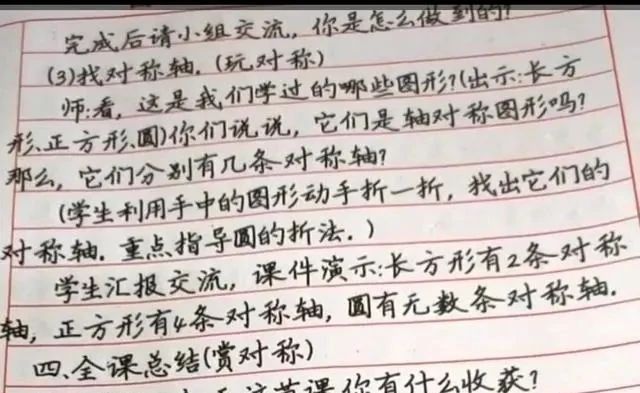 完成后请小组交流，你是怎么做到的？
(3)找对称轴.(玩对称)
师:看，这是我们学过的哪些图形?(出示:长方
形、正方形、圆)你们说说，它们是轴对称图形吗?
那么，它们分别有几条对称轴?
(学生利用手中的图形动手折一折，找出它们的
对称轴.重点指导圆的折法.)
学生汇报交流，课件演示:长方形有2条对称
轴，正方形有4条对称轴，圆有无数条对称轴.
四、全课总结(赏对称)
这节课你有什么收获?